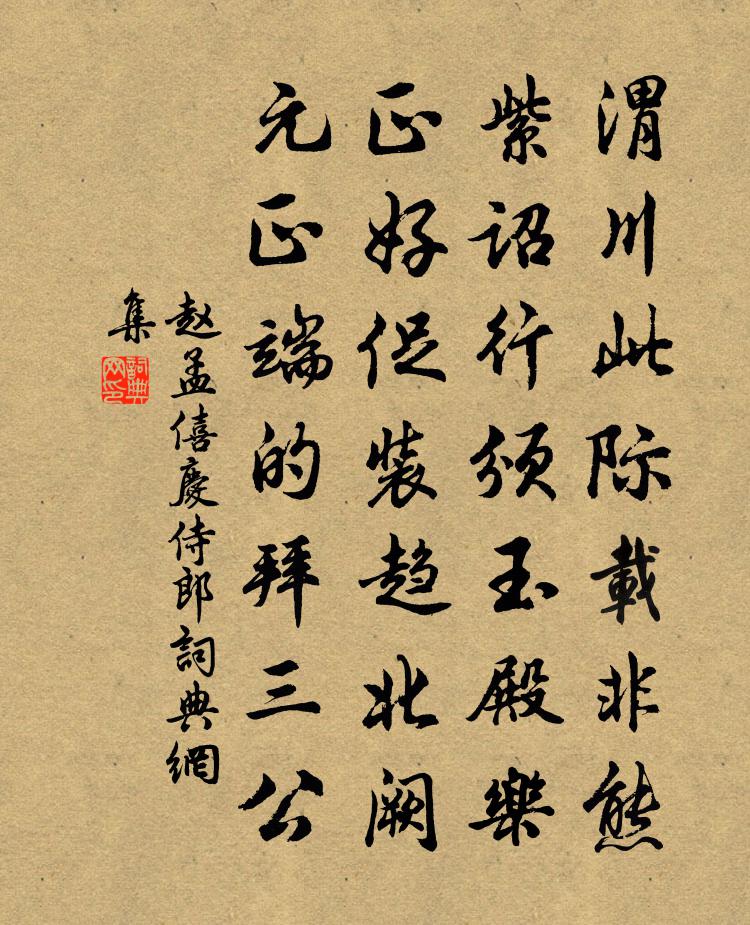 渭川此际載非熊
紫诏行颁玉殿樂
正好促装趋北阙
元正端的拜三公
赵孟僖慶侍郎詞典網
集
詞典
网印